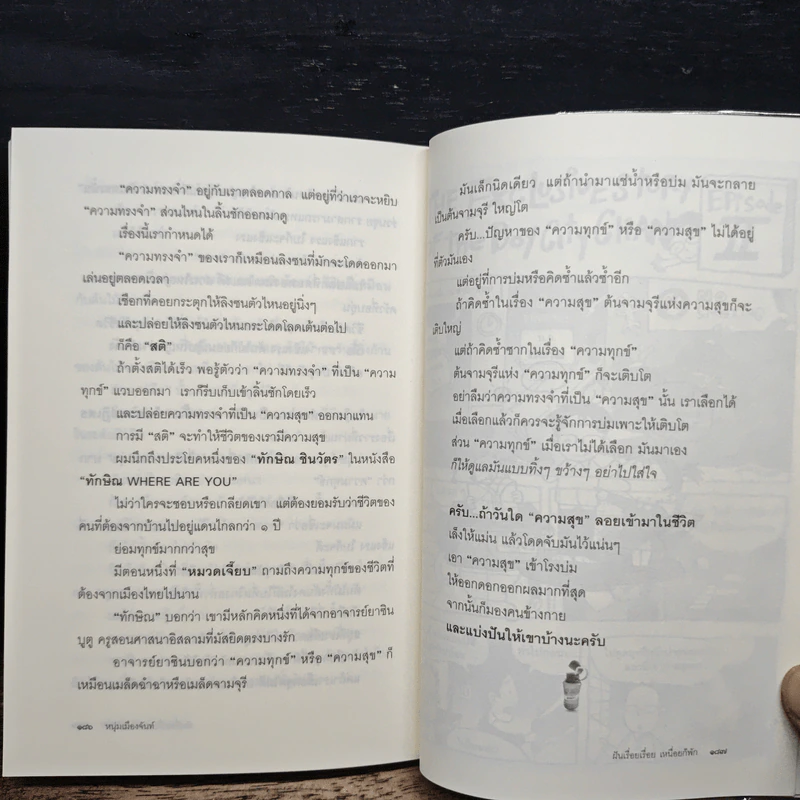 "ความทรงจำ" อยู่กับเราตลอดกาล แต่อยู่ที่ว่าเราจะหยิบ
"ความทรงจำ" ส่วนไหนในลิ้นชักออกมาดู
เรื่องนี้เรากำหนดได้
"ความทรงจำ" ของเราก็เหมือนลิงซนที่มักจะโดดออกมา
เล่นอยู่ตลอดเวลา
เชือกที่คอยกระตุกให้ลิงซนตัวไหนอยู่นิ่งๆ
และปล่อยให้ลิงซนตัวไหนกระโดดโลดเต้นต่อไป
ก็คือ "สติ"
ถ้าตั้งสติได้เร็ว พอรู้ตัวว่า "ความทรงจำ" ที่เป็น "ความ
ทุกข์" แวบออกมา เราก็รีบเก็บเข้าลิ้นชักโดยเร็ว
และปล่อยความทรงจำที่เป็น "ความสุข" ออกมาแทน
การมี "สติ" จะทำให้ชีวิตของเรามีความสุข
ผมนึกถึงประโยคหนึ่งของ "ทักษิณ ชินวัตร" ในหนังสือ
"ทักษิณ WHERE ARE YOU"
ไม่ว่าใครจะชอบหรือเกลียดเขา แต่ต้องยอมรับว่าชีวิตของ
คนที่ต้องจากบ้านไปอยู่แดนไกลกว่า ๑ ปี
ย่อมทุกข์มากกว่าสุข
มีตอนหนึ่งที่ "หมวดเจี๊ยบ" ถามถึงความทุกข์ของชีวิตที่
ต้องจากเมืองไทยไปนาน
"ทักษิณ" บอกว่า เขามีหลักคิดหนึ่งที่ได้จากอาจารย์ยาซิน
บูตู ครูสอนศาสนาอิสลามที่มัสยิดตรงบางรัก
อาจารย์ยาซินบอกว่า "ความทุกข์" หรือ "ความสุข" ก็
เหมือนเมล็ดฉำฉาหรือเมล็ดจามจุรี
๑๘๖ หนุ่มเมืองจันท์
มันเล็กนิดเดียว แต่ถ้านำมาแช่น้ำหรือบ่ม มันจะกลาย
เป็นต้นจามจุรี ใหญ่โต
ครับ...ปัญหาของ "ความทุกข์" หรือ "ความสุข" ไม่ได้อยู่
ที่ตัวมันเอง
แต่อยู่ที่การบ่มหรือคิดซ้ำแล้วซ้ำอีก
ถ้าคิดซ้ำในเรื่อง "ความสุข" ต้นจามจุรีแห่งความสุขก็จะ
เติบใหญ่
แต่ถ้าคิดซ้ำซากในเรื่อง "ความทุกข์"
ต้นจามจุรีแห่ง "ความทุกข์" ก็จะเติบโต
อย่าลืมว่าความทรงจำที่เป็น "ความสุข" นั้น เราเลือกได้
เมื่อเลือกแล้วก็ควรจะรู้จักการบ่มเพาะให้เติบโต
ส่วน "ความทุกข์" เมื่อเราไม่ได้เลือก มันมาเอง
ก็ให้ดูแลมันแบบทิ้งๆ ขว้างๆ อย่าไปใส่ใจ
ครับ...ถ้าวันใด "ความสุข" ลอยเข้ามาในชีวิต
เล็งให้แม่น แล้วโดดจับมันไว้แน่นๆ
เอา "ความสุข" เข้าโรงบ่ม
ให้ออกดอกออกผลมากที่สุด
จากนั้นก็มองคนข้างกาย
และแบ่งปันให้เขาบ้างนะครับ
ฝันเรื่อยเรื่อย เหนื่อยก็พัก ๑๘๗